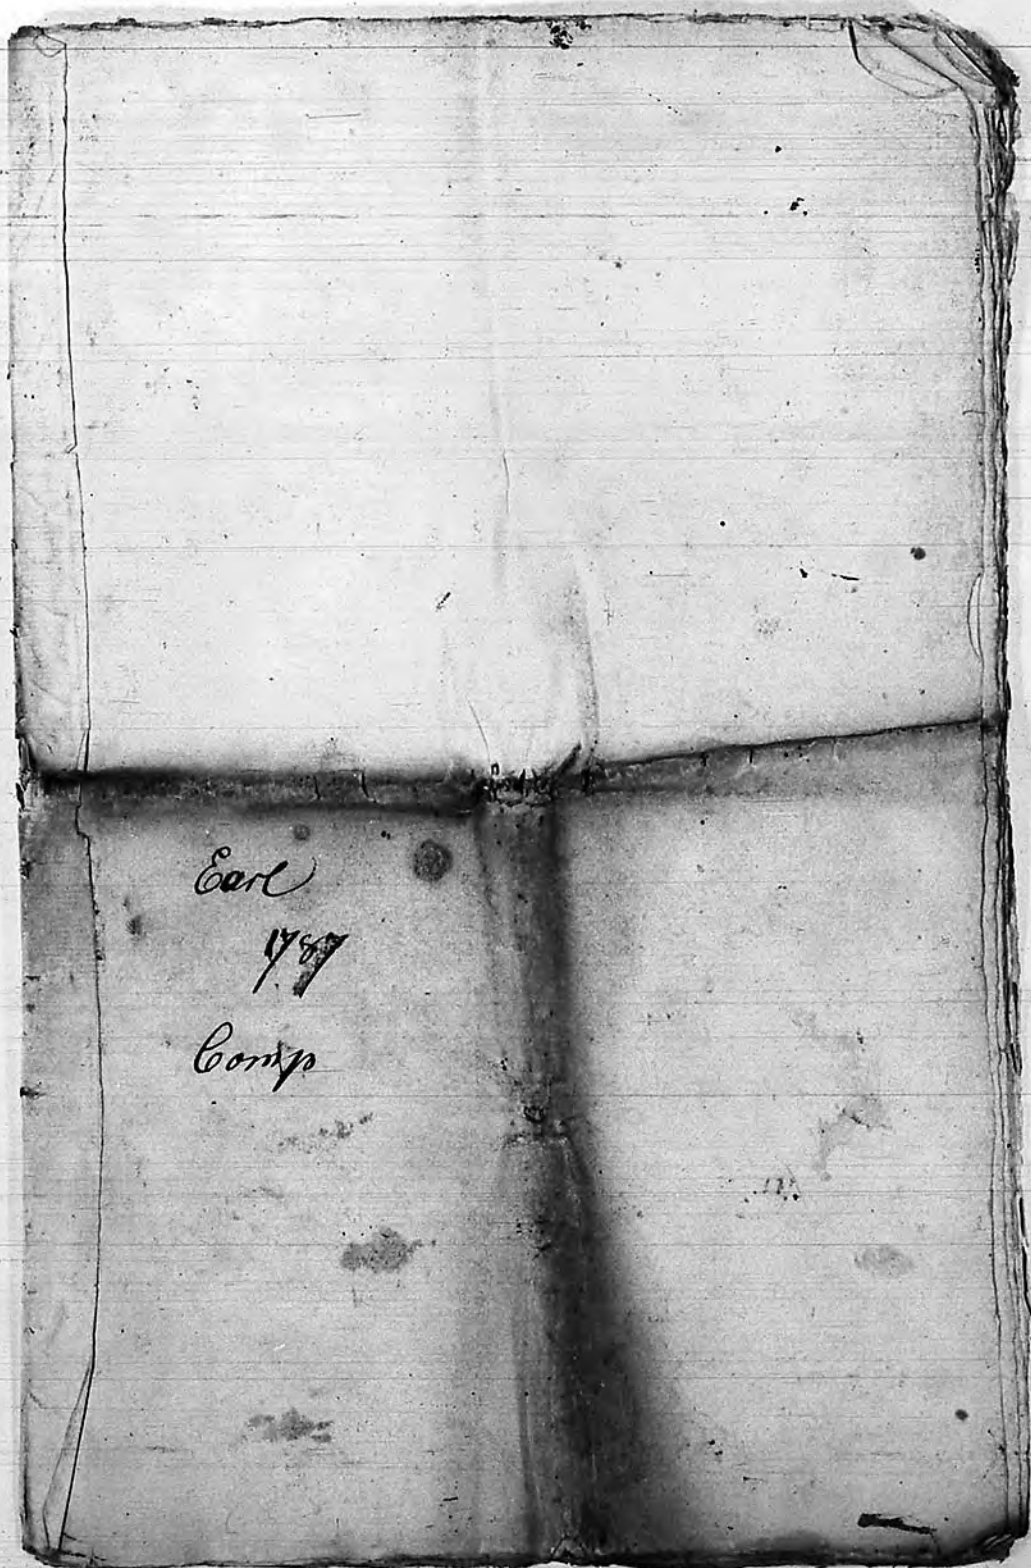 Earl
1787
Comp